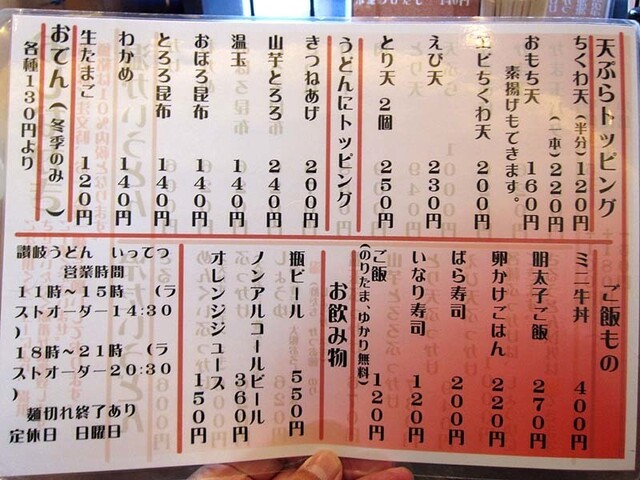 天ぷらトッピング
ちくわ天(半分)120円
(一本)220円
おもち天 160円
素揚げもできます。
エビちくわ天 200円
えび天 230円
とり天 2個 250円
うどんにトッピング
きつねあげ 200円
山芋とろろ 240円
温玉 140円
おぼろ昆布 140円
とろろ昆布 140円
わかめ 140円
生たまご 120円
おでん(冬季のみ)
各種130円より
ご飯もの
ミニ牛丼 400円
明太子ご飯 270円
卵かけごはん 220円
ばら寿司 200円
いなり寿司 120円
ご飯 120円
(のりたま、ゆかり無料)
お飲み物
瓶ビール 550円
ノンアルコールビール 360円
オレンジジュース 150円
讃岐うどん いってつ
営業時間
11時~15時 (ラ
ストオーダー14:30
)
18時~21時 (ラ
ストオーダー20:30
)
麺切れ終了あり
定休日 日曜日